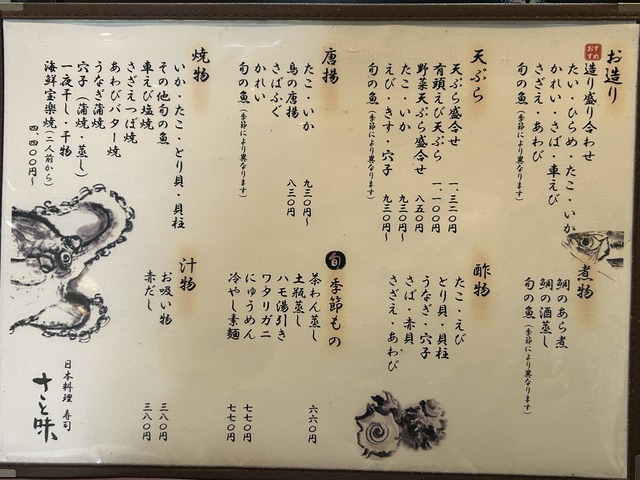 お造り
おすすめ
造り盛り合わせ
たい・ひらめ・たこ・いか
かれい・さば・車えび
さざえ・あわび
旬の魚(季節により異なります)
天ぷら
天ぷら盛合せ 一、三二〇円
有頭えび天ぷら 一、一〇〇円
野菜天ぷら盛合せ 八五〇円
たこ・いか 九三〇円~
えび・きす・穴子 九三〇円~
旬の魚(季節により異なります)
唐揚
たこ・いか 九三〇円~
鳥の唐揚 八三〇円
さばふぐ
かれい
旬の魚(季節により異なります)
焼物
いか・たこ・とり貝・貝柱
その他旬の魚
車えび塩焼
さざえつぼ焼
あわびバター焼
うなぎ蒲焼
穴子(蒲焼・蒸し)
一夜干し・干物
海鮮宝楽焼(二人前から)
四、四〇〇円~
煮物
鯛のあら煮
鯛の酒蒸し
旬の魚(季節により異なります)
酢物
たこ・えび
とり貝・貝柱
うなぎ・穴子
さば・赤貝
さざえ・あわび
旬 季節もの
茶わん蒸し 六六〇円
土瓶蒸し
ハモ湯引き
ワタリガニ
にゅうめん 七七〇円
冷やし素麺 七七〇円
汁物
お吸い物 三八〇円
赤だし 三八〇円
日本料理 寿司
さと味